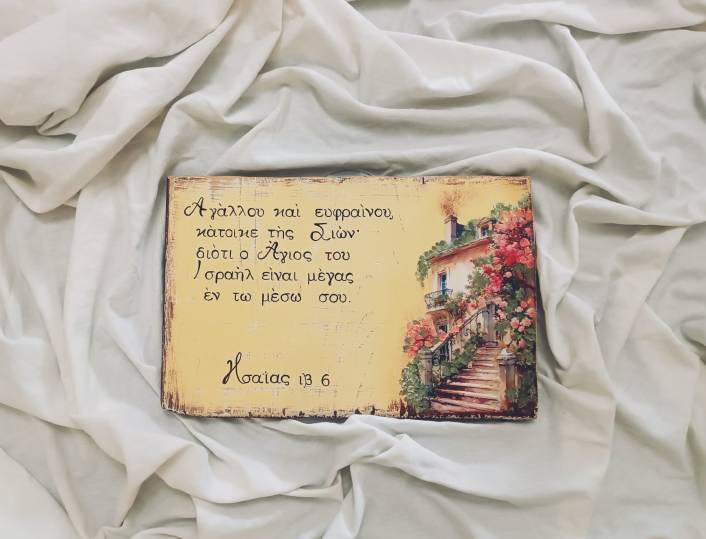 Αγὰλλου καὶ ευφραὶνου,
κὰτοικε τὴς Σιὼν·
διὸτι ο Ἂγιος του
Ισραὴλ εἲναι μὲγας
ἐν τω μὲσω σου.
Ησαΐας ιβ 6